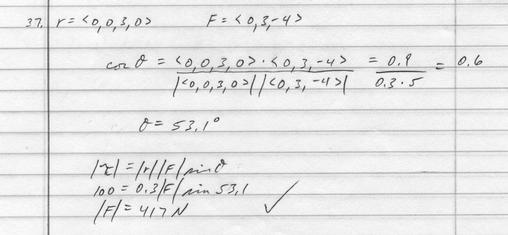 37. r = <0,0,3,0> F = <0,3,-4>
cos θ = <0,0,3,0> · <0,3,-4> / |<0,0,3,0>| |<0,3,-4>| = 0.9 / 0.3 · 5 = 0.6
θ = 53.1°
|τ| = |r| |F| sin θ
100 = 0.3 |F| sin 53.1
|F| = 417 N ✓